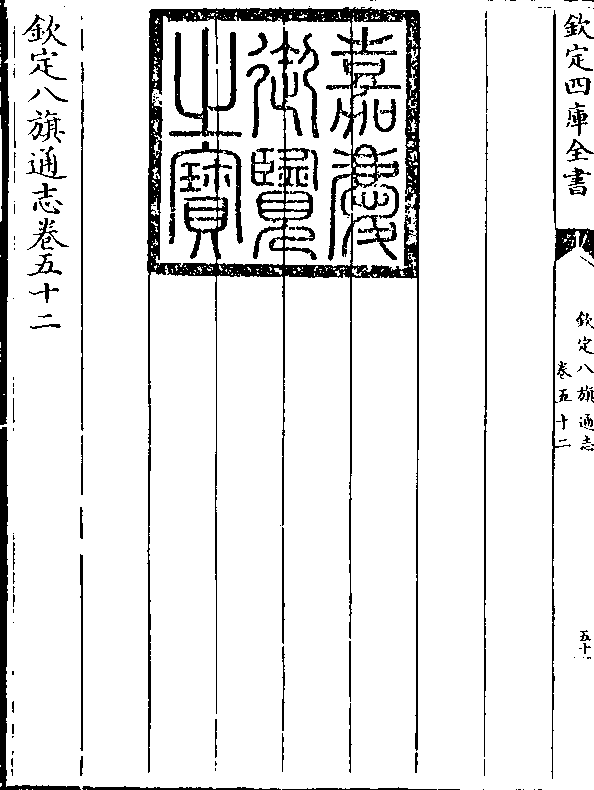 欽定四庫全書
欽定八旗通志
卷五十二
五十
嘉慶
御覽
之寶
欽定八旗通志卷五十二